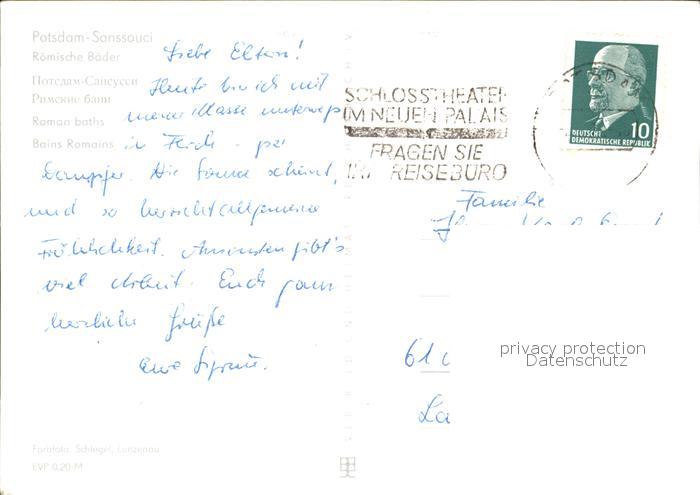 Potsdam-Sanssouci
Römische Bäder
Потсдам-Сансусси
Римские бани
Roman baths
Bains Romains
Liebe Eltern!
Heute bin ich mit
meiner Klasse unterwegs
in Ferch - per
Dampfer. Die Sonne scheint,
und so herrscht allgemeine
Fröhlichkeit. Ansonsten gibt's
viel Arbeit. Euch ganz
herzliche Grüße
Eure Sigrun.
Farbfoto: Schlegel, Lunzenau
EVP 0,20 M
SCHLOSSTHEATER
IM NEUEN PALAIS
FRAGEN SIE
IM REISEBÜRO
DEUTSCHE
DEMOKRATISCHE REPUBLIK
10
Familie
61
La
privacy protection
Datenschutz